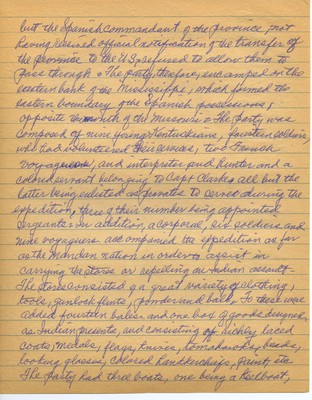 but the Spanish commandant of the province, not
having received official notification of the transfer of
the province to the U.S. refused to allow them to
pass through. The party, therefore, encamped on the
eastern bank of the Mississippi, which formed the
eastern boundary of the Spanish possessions,
opposite the mouth of the Missouri. The party was
composed of nine young Kentuckians, fourteen soldiers,
who had volunteered their services, two French
voyageurs, and interpreter and hunter and a
colored servant belonging to Capt Clark; all but the
latter being enlisted as privates to serve during the
expedition, three of their number being appointed
sergeants. In addition, a corporal, six soldiers and
nine voyageurs accompanied the expedition as far
as the Mandan nation in order to assist in
carrying the stores or repelling an Indian assault.
The stores consisted of a great variety of clothing,
tools, gunlocks, flints, powder and balls. To these were
added fourteen bales and one box of goods designed
as Indian presents, and consisting of richly laced
coats, medals, flags, knives, tomahawks, beads,
looking glasses, colored handkerchiefs, paint, etc.
The party had three boats, one being a keelboat,